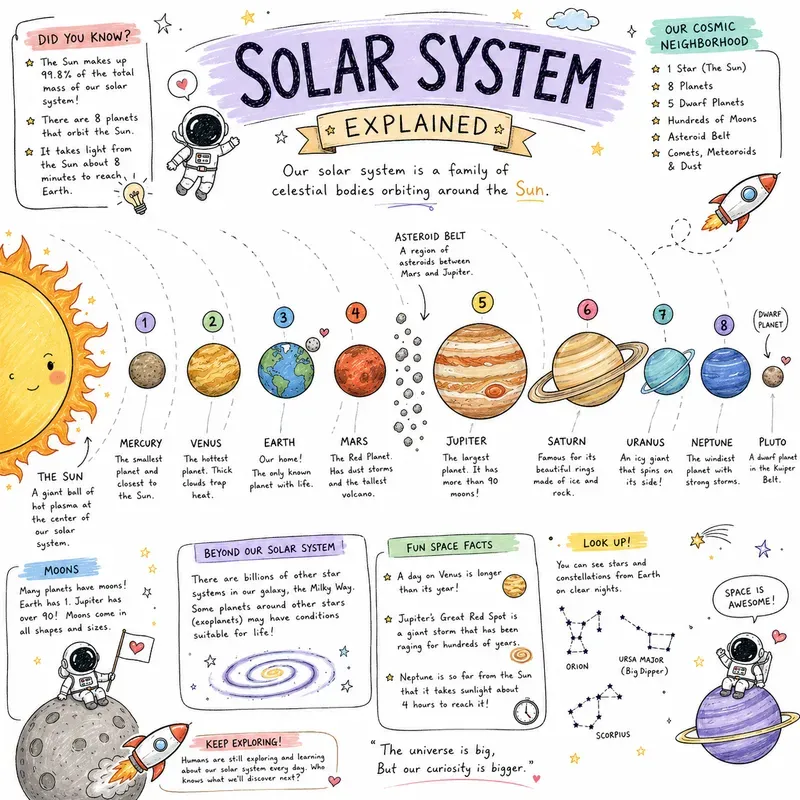 DID YOU KNOW?
The Sun makes up
99.8% of the total
mass of our solar
system!
There are 8 planets
that orbit the Sun.
It takes light from
the Sun about 8
minutes to reach
Earth.
SOLAR SYSTEM
EXPLAINED
Our solar system is a family of
celestial bodies orbiting around the Sun.
OUR COSMIC
NEIGHBORHOOD
1 Star (The Sun)
8 Planets
5 Dwarf Planets
Hundreds of Moons
Asteroid Belt
Comets, Meteoroids
& Dust
ASTEROID BELT
A region of
asteroids between
Mars and Jupiter.
THE SUN
A giant ball of
hot plasma at
the center of
our solar
system.
1
MERCURY
The smallest
planet and
closest to
the Sun.
2
VENUS
The hottest
planet. Thick
clouds trap
heat.
3
EARTH
Our home!
The only known
planet with life.
4
MARS
The Red Planet.
Has dust storms
and the tallest
volcano.
5
JUPITER
The largest
planet. It has
more than 90
moons!
6
SATURN
Famous for its
beautiful rings
made of ice and
rock.
7
URANUS
An icy giant
that spins on
its side!
8
NEPTUNE
The windiest
planet with
strong storms.
(DWARF
PLANET)
PLUTO
A dwarf planet
in the Kuiper
Belt.
MOONS
Many planets have moons!
Earth has 1. Jupiter has
over 90! Moons come in
all shapes and sizes.
BEYOND OUR SOLAR SYSTEM
There are billions of other star
systems in our galaxy, the Milky Way.
Some planets around other stars
(exoplanets) may have conditions
suitable for life!
FUN SPACE FACTS
A day on Venus is longer
than its year!
Jupiter's Great Red Spot is
a giant storm that has been
raging for hundreds of years.
Neptune is so far from the Sun
that it takes sunlight about
4 hours to reach it!
LOOK UP!
You can see stars and
constellations from Earth
on clear nights.
ORION
URSA MAJOR
(Big Dipper)
SCORPIUS
SPACE IS
AWESOME!
KEEP EXPLORING!
Humans are still exploring and learning
about our solar system every day. Who
knows what we'll discover next?
"The universe is big,
But our curiosity is bigger."